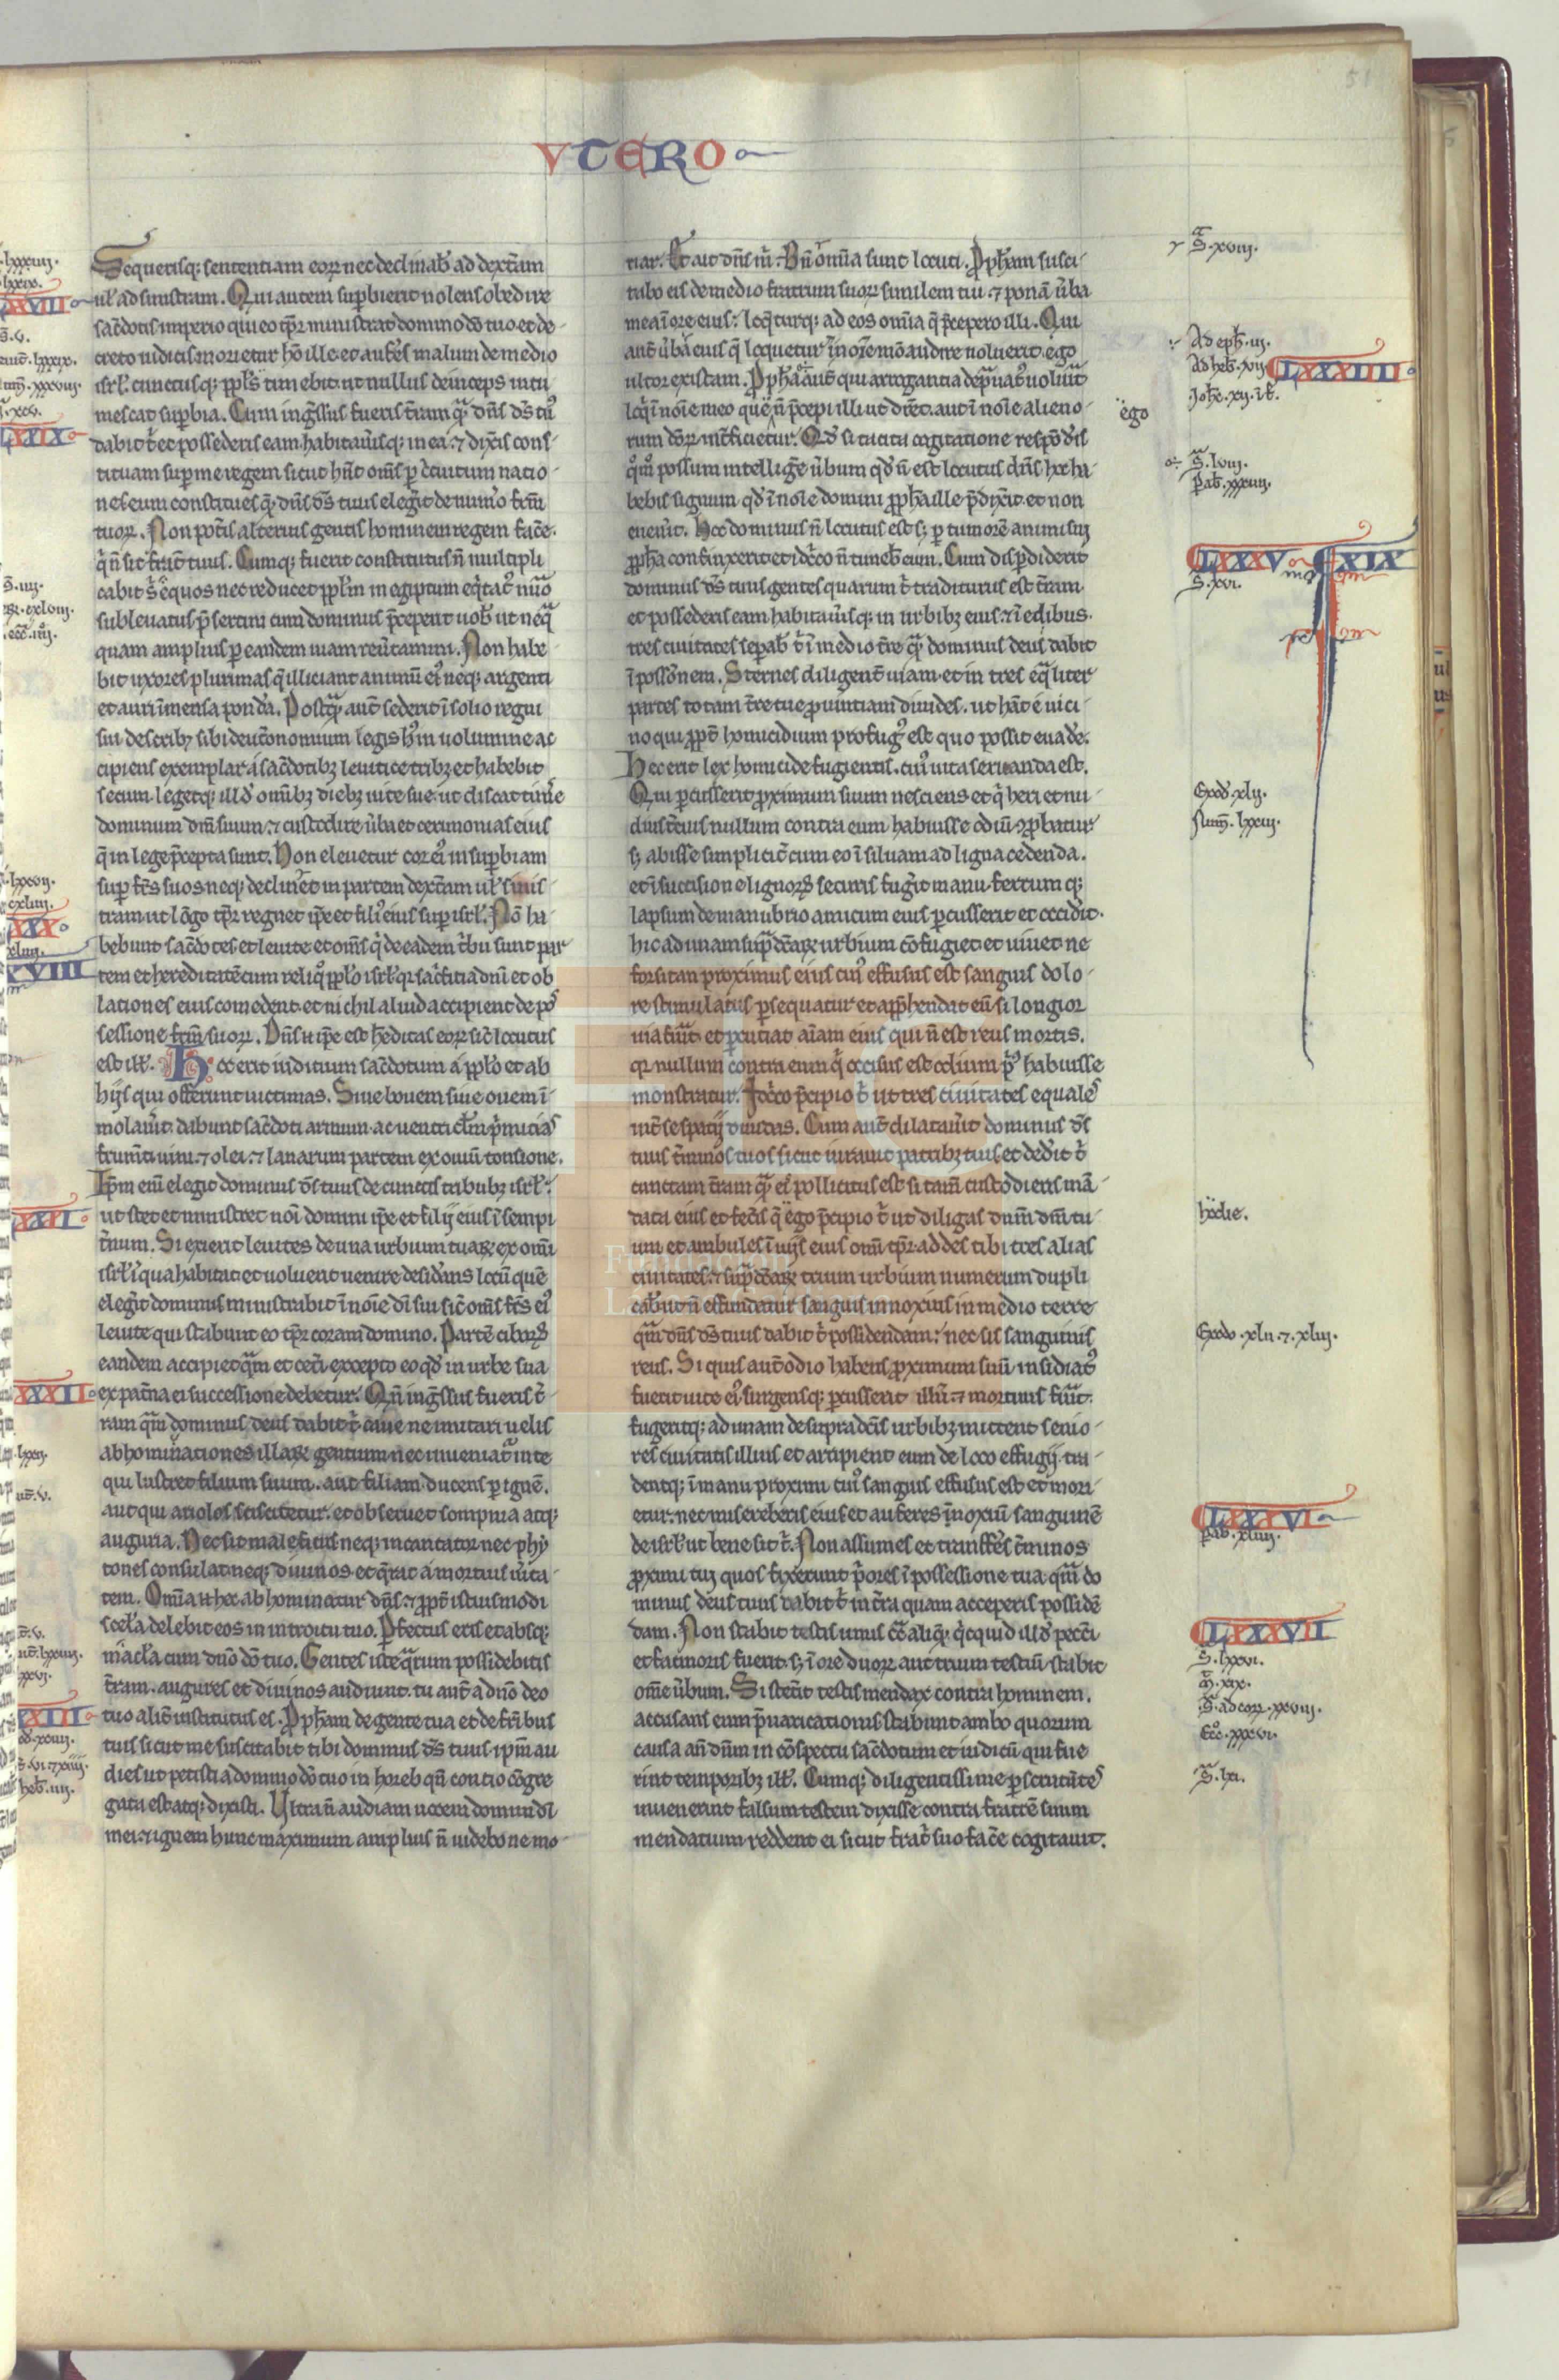 51
VTERO
Sequerisq; sententiam eoꝝ nec declinab̄ ad dext̄am
ul̓ ad sinistram. Qui autem sup̱bierit nolens obedire
sac̄dotis imperio qui eo tp̄r ministrat domino dō tuo et de-
creto iudicis morietur hō ille et auferes malum de medio
isrl̓. cunctusq; ppl̓s timebit ut nullus deinceps intu
mescat sup̱bia. Cum ingr̄ssus fueris t̄ram qͣ. dn̄s ds̄ tuꝰ
dabit t̄ et possederis eam habitau̓isq; in ea. ⁊ dix̓is cons-
tituam sup̱ me regem sicut hn̄t om̄s p̱ c̓cuitum natio-
nes eum constitues q̄. dn̄s ds̄ tuus eleḡit de num̓o fr̄m
tuoꝝ. Non pot̓is alterius gentis hominem regem fac̄e.
q̓ n̄ sit frat̓ tuus. Cumq; fuerit constitutus n̄ multipli
cabit s̓ equos nec reducet ppl̓m in egiptum eq̓tatꝰ num̓o
subleuatus p̄sertim cum dominus p̄cepert uob̓ ut neq̄
quam amplius p̱ eandem uiam reu̓tamini. Non habe
bit uxores plurimas q̄ illiciant animū eiꝰ neq; argenti
et auri īmensa pond̓a. Postq̄ꝫ aut̄ sederit ī solio regni
sui describꝫ sibi deut̓onomium legis hꝰ in uolumine ac
cipiens exemplar a sac̄dotibꝫ leuitice tribꝫ et habebit
secum. legetq; ill̓d omībꝫ diebꝫ uite sue. ut discat tim̓e
dominum dm̄ suum. ⁊ custodire u̓ba et cerimonias eius
q̄ in lege p̄cepta sunt. Non eleuetur cor eiꝰ in sup̱biam
sup̱ fr̄s suos neq; declin̓et in partem dext̄am ul̓ sinis
tram ut lōgo tp̄r regnet ip̄e et filiꝰ eius sup̱ isrl̓. Nō ha
bebunt sac̄dotes et leuite et om̄s q̓ de eadem t̓bu sunt par
tem et hereditatē cum reliqꝰ ppl̓o isrl̓. qr sac̓ficia dn̄i et ob
lationes eius comedent. et nichil aliud accipient de pos
sessione fr̄m suoꝝ. Dn̄s n̄ ip̄e est h̓editas eoꝝ sic̄ locutus
est ill̓. Hoc erit iuditium sac̄dotum a ppl̓o et ab
hijs qui offerunt uictimas. Siue bouem siue ouem ī-
molau̓it. dabunt sac̄doti armum. ac uentriclm̄ p̓mitias
frum̄ti uini. ⁊ olei. ⁊ lanarum partem ex ouiū tonsione.
Ip̄m eni elegit dominus ds̄ tuus de cunctis tribubꝫ isrl̓:
ut stet et ministret noī domini ip̄e et filij eius ī sempi
t̓num. Si exierit leuites de una urbium tuaꝝ ex omi
isrl̓ ī qua habitat. et uoluerit uenire desid̓ans locū quē
eleḡit dominus ministrabit ī noīe dī sui sic̄ om̄s fr̄s eiꝰ
leuite qui stabunt eo tp̄r coram domino. Partē ciboꝝ
eandem accipiet qͣm et cet̓i. excepto eo qd̓ in urbe sua
ex pat̓na ei successione debetur. Qn̄ ingr̄ssus fueris t̄
ram qͣm dominus deus dabit t̓ caue ne imitari uelis
abhominationes illaꝝ gentium. nec inueniatꝰ in te
qui lustret filium suum. aut filiam ducens p̱ ignē.
aut qui ariolos sciscitetur. et obseruet sompnia atq;
auguria. Nec sit maleficus neq; incantator nec phy
tones consulat neq; diuinos. et q̓rat a mortuis u̓ita-
tem. Om̄ia n̄ hec abhominatur dn̄s. ⁊ ppt̓ istiusmodi
scel̓a delebit eos in introitu tuo. P̱fectus eris et absq;
mac̓la cum dn̄o dō tuo. Gentes iste qͣrum possidebitis
t̄ram. augures et diuinos audiunt. tu aut̄ a dn̄o deo
tuo alit̓ institutus es. Pph̄am de gente tua et de fr̄ibus
tuis sicut me suscitabit tibi dominus ds̄ tuus. ip̄m au
dies ut petisti a domino dō tuo in horeb qn̄ contio cōgre
gata est atq; dixisti. Ultra n̄ audiam uocem domini dī
mei. ⁊ ignem hunc maximum amplius n̄ uidebo ne mo-
riar. Et ait dn̄s m̄. Bn̄ om̄ia sunt locuti. Pph̄am susci-
tabo eis de medio fratrum suoꝝ similem tui ⁊ ponā u̓ba
mea ī ore eius: loq̓turq; ad eos om̄ia q̄ p̄cepero illi. Qui
aut̄ u̓ba eius q̄ loquetur ī noīe m̄o audire noluerit. ego
ultor existam. Pph̄a aut̄ qui arrogantia dep̓uatꝰ uolu̓it
loq̓ ī noīe meo que n̄ p̄cepi illi ut dic̓et. aut ī noīe alieno-
rum deoꝝ int̓ficietur. Qd̓ si tacita cogitatione respōd̓is
qͦmͦ possum intellig̓e u̓bum qd̓ n̄ est locutus dn̄s hoc ha-
bebis signum qd̓ ī noīe domini ppha ille p̄dix̓it. et non
eueu̓it. Hoc dominus n̄ locutus est sꝫ p̱ tumorē animi sui
ppha confinxerit et idc̓co n̄ timeb̓ eum. Cum disp̱diderit
dominus ds̄ tuus gentes quarum t̓ traditurus est t̄ram.
et possederis eam habitau̓isq; in urbibꝫ eius. ⁊ ī edibus.
tres ciuitates sepab̓ t̓ ī medio t̄re qͣ dominus deus dabit
ī poss̓onem. Sternes diligent̓ uiam. et in tres eq̓liter
partes totam t̄re tue prouintiam diuides. ut h̓at e uici-
no qui ppt̓ homicidium profugꝰ est quo possit euad̓e.
Hec erit lex homicide fugientis. cuiꝰ uita seruanda est.
Qui p̱cusserit proximum suum nesciens et q̓ heri et nu-
dius t̓cius nullum contra eum habuisse odiū prbatur
sꝫ abisse simplicit̓ cum eo ī siluam ad ligna cedenda.
et ī succisione lignoꝝ securis fug̓it manu. ferrum q;
lapsum de manubrio amicum eius p̱cusserit et occid̓it.
hic ad unam sup̓dc̄aꝝ urbium cōfugiet et uiuet ne
forsitan proximus eius cuiꝰ effusus est sanguis dolo-
re stimulatus p̱sequatur et apphendat eū si longior
uia fu̓it et p̱cutiat aīam eius qui n̄ est reus mortis.
qr nullum contra eum q̓ occisus est odium p̓ꝰ habuisse
monstratur. Idc̓co p̄cipio t̓ ut tres ciuitates equales
int̓ se spatij diuidas. Cum aut̄ dilatau̓it dominus ds̄
tuus t̓minos tuos sicut iurauit patribꝫ tuis et ded̓it t̓
cunctam t̄ram qͣ eis pollicitus est si tam̄ custodieris mā-
data eius et fec̓is q̄ ego p̄cipio t̓ ut diligas dnm̄ dm̄ tu-
um et ambules ī uijs eius omī tp̄r. addes tibi tres alias
ciuitates. ⁊ sup̓dc̄aꝝ trium urbium numerum dupli
cab̓ ut n̄ effundatur sanguis innoxius in medio terre
qͣm dn̄s ds̄ tuus dabit t̓ possidendam: nec sis sanguinis
reus. Si quis aut̄ odio habens proximum suū insidiatꝰ
fuerit uite eiꝰ. surgensq; p̱cusserit illū. ⁊ mortuus fu̓it.
fugeritq; ad unam de supradc̄is urbibꝫ mittent senio-
res ciuitatis illius et arripient eum de loco effugij. tra-
dentq; ī manu proximi cuiꝰ sanguis effusus est et mori-
etur. nec misereberis eius et auferes īnoxiū sanguinē
de isrl̓ ut bene sit t̓. Non assumes et transferes t̓minos
proximi tui quos fixerunt p̓ores ī possessione tua qͣm do
minus deus tuus dabit t̓ in t̄ra quam acceperis possidē
dam. Non stabit testis unus cōt̓ aliqͥ. q̓cquid ill̓d pecc̄i
et facinoris fuerit. sꝫ ī ore duoꝝ aut trium testiū stabit
ome u̓bum. Si stet̓it testis mendax contra hominem.
accusans eum p̄uaricationis stabunt ambo quorum
causa an̄ dnm̄ in cōspectu sac̄dotum et iudicū qui fue
rint temporibꝫ ill̓. Cumq; diligentissime p̱scrutātes
inuenerint falsum testem dixisse contra fratrē suum
mendatium. reddent ei sicut frat̓ suo fac̄e cogitauit.
S. xviij.
Ad eph̄. iij.
Ad heb̓. xij
LXXXIIII
Joh̓e. xij. it̓.
ego
S. lviij.
LXXXV
XIX
S. xvi.
Exod̓. xlij.
Num̄. lxxiij.
hodie.
Exodo. xlii. ⁊. xliij.
LXXXVI
Pab̓. xliiij.
LXXXVII
S. lxxvi.
m̄. xix.
S. ad cor̄. xxviij.
Ecc̄. xxxvi.
S. lxi.
Fundación